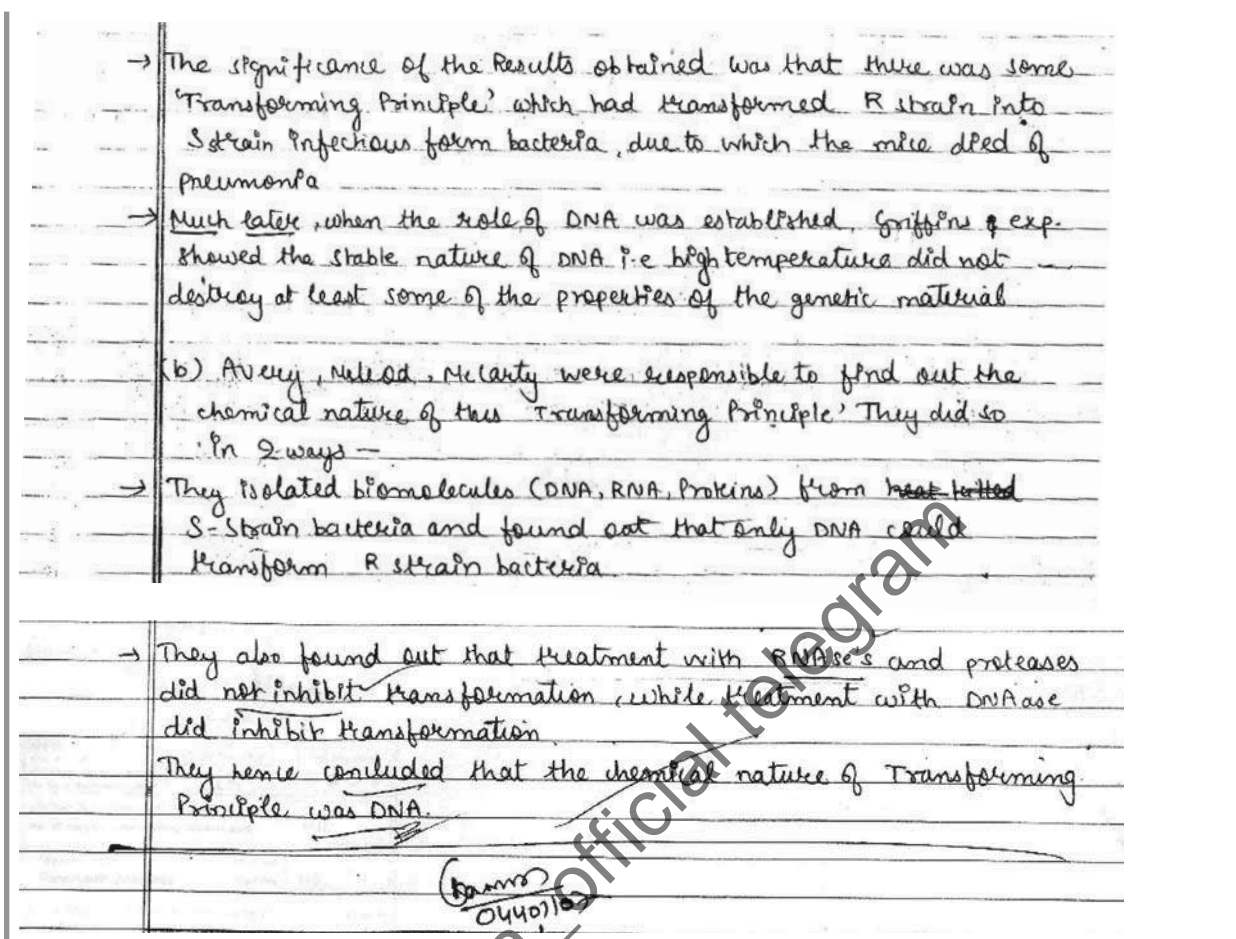 → The significance of the Results obtained was that there was some
'Transforming Principle' which had transformed R strain into
S strain infectious form bacteria, due to which the mice died of
pneumonia
→ Much later, when the role of DNA was established, Griffins exp.
showed the stable nature of DNA i.e high temperature did not
destroy at least some of the properties of the genetic material
(b) Avery, McLeod, McCarty were responsible to find out the
chemical nature of this 'Transforming Principle' They did so
in 2 ways —
→ They isolated biomolecules (DNA, RNA, Proteins) from heat killed
S-Strain bacteria and found out that only DNA could
transform R strain bacteria
→ They also found out that treatment with RNAse's and proteases
did not inhibit transformation, while treatment with DNAase
did inhibit transformation
They hence concluded that the chemical nature of Transforming
Principle was DNA.
official telegram